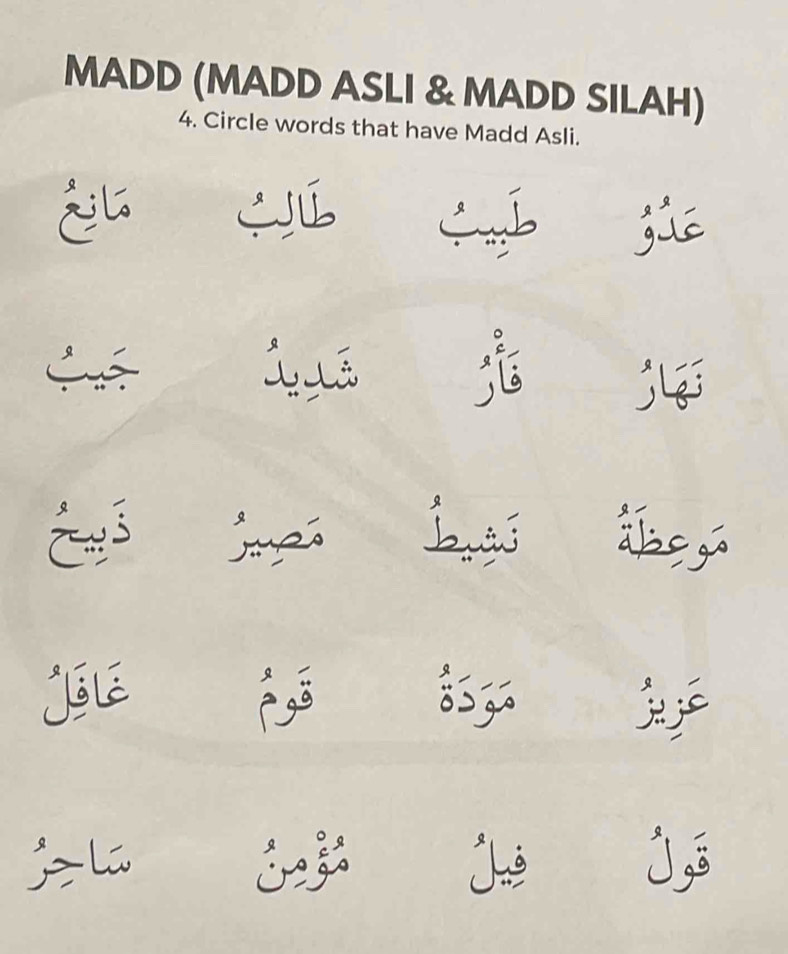 MADD (MADD ASLI & MADD SILAH)
4. Circle words that have Madd Asli.
عَدُوُ طَبِيبُ طَالِبُ مَانِعُ
نَهَارُ فَأْرُ شَدِيدُ جَيبُ
مَوعِظَةُ نَشِيطُ مَصِيرُ ذَبِيحُ
عَزِيزُ مَوَدَةُ قَومُ غَافَلُ
قَولُ فِيلُ مُؤْمِنُ سَاحِرُ